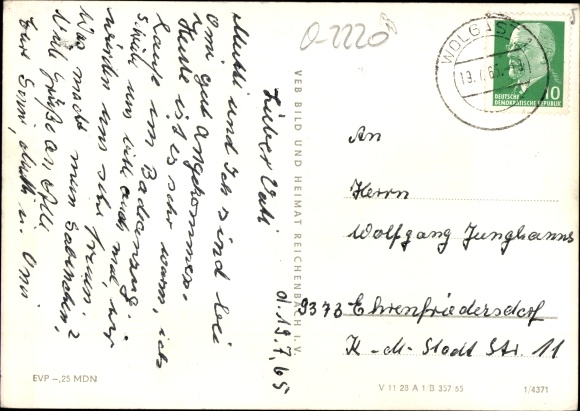 O-2220
WOLGAST 1
19.7.65
DEUTSCHE
DEMOKRATISCHE REPUBLIK
10
d. 19.7.65
Lieber Vati
Mutti und Ich sind bei
Omi gut angekommen.
Heute ist es sehr warm, ich
laufe im Badeanzug.
Schreib uns bitte auch mal, wir
würden uns sehr freuen.
Was macht mein
Viele Grüße an alle
Eure Mutti u. Omi
VEB BILD UND HEIMAT REICHENBACH I. V.
An
Herrn
Wolfgang Junghanns
9373 Ehrenfriedersdorf
K-M-Stadt Str. 11
EVP -,25 MDN
V 11 28 A 1 B 357 65
1/4371